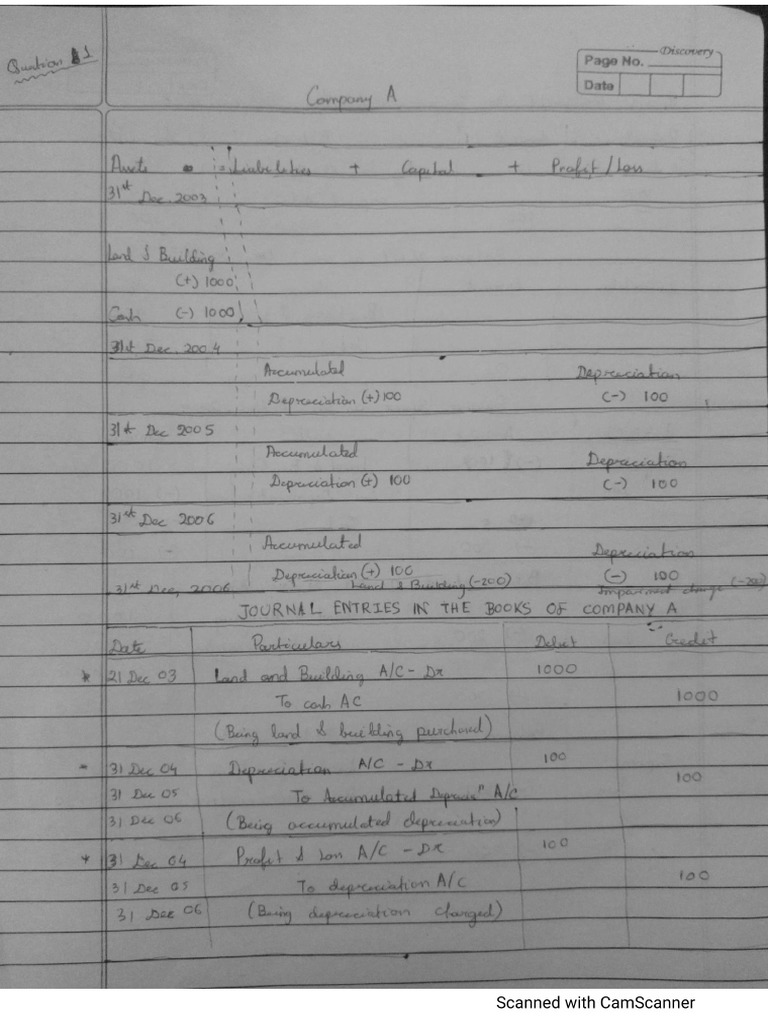 Question 1
Discovery
Page No.
Date
Company A
Assets = Liabilities + Capital + Profit/Loss
31st Dec. 2003
Land & Building
(+) 1000
Cash (-) 1000
31st Dec. 2004
Accumulated Depreciation
Depreciation (+) 100 (-) 100
31st Dec 2005
Accumulated Depreciation
Depreciation (+) 100 (-) 100
31st Dec 2006
Accumulated Depreciation
Depreciation (+) 100 (-) 100
31st Dec, 2006 Land & Building (-200) Impairment charge (-200)
JOURNAL ENTRIES IN THE BOOKS OF COMPANY A
Date Particulars Debit Credit
21 Dec 03 Land and Building A/C - Dr 1000
To cash AC 1000
(Being land & building purchased)
31 Dec 04 Depreciation A/C - Dr 100
31 Dec 05 To Accumulated Deprecian A/C 100
31 Dec 06 (Being accumulated depreciation)
31 Dec 04 Profit & Loss A/C - Dr 100
31 Dec 05 To depreciation A/C 100
31 Dec 06 (Being depreciation charged)
Scanned with CamScanner